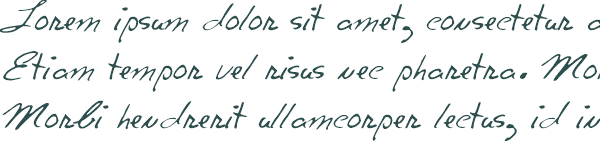 Lorem ipsum dolor sit amet, consectetur a
Etiam tempor vel risus nec pharetra. Mor
Morbi hendrerit ullamcorper lectus, id in